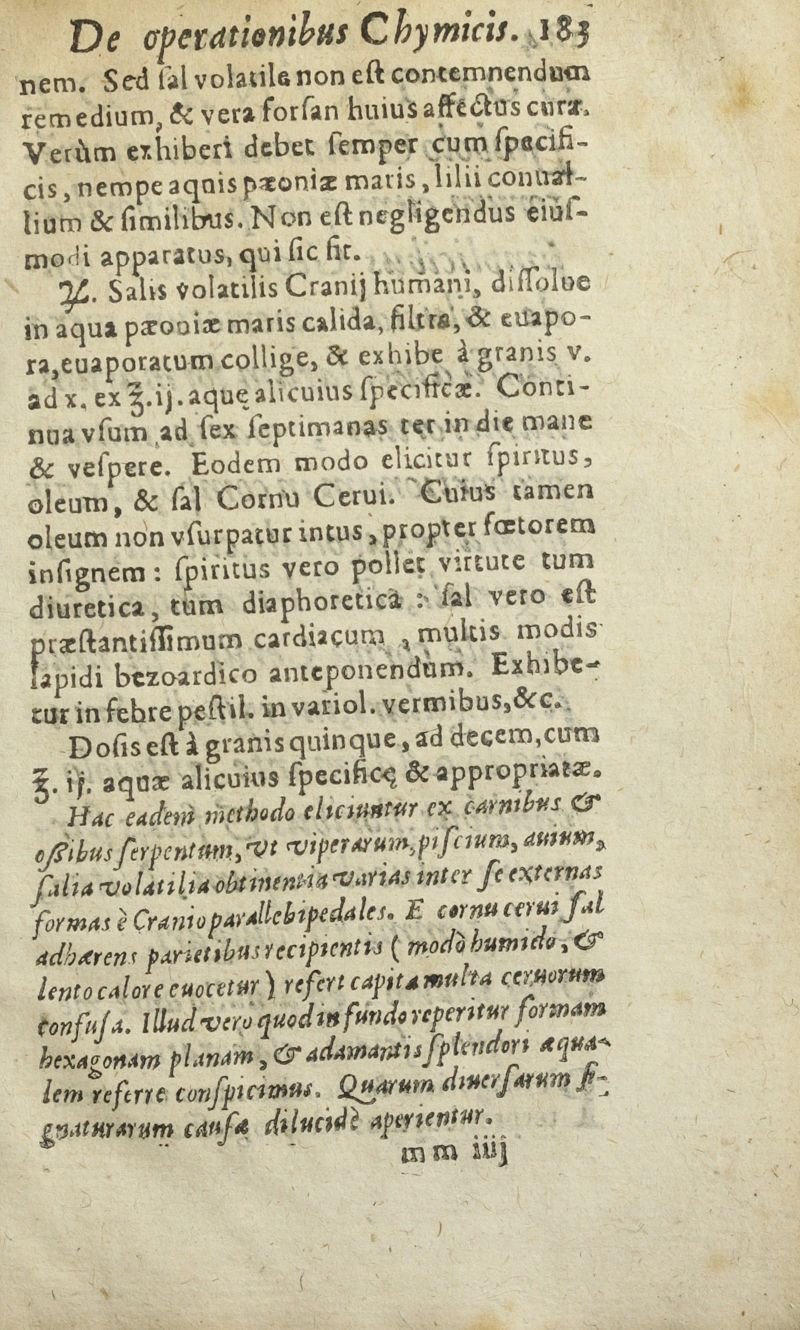 De operationibus Chymicis. 183
nem. Sed ſal volatile non eſt contemnendum
remedium, & vera forſan huius affectus curæ.
Verùm exhiberi debet ſemper cum ſpecifi-
cis, nempe aquis pæoniæ maris, lilii conual-
lium & ſimilibus. Non eſt negligendus eiuſ-
modi apparatus, qui ſic fit.
♃. Salis volatilis Cranij humani, diſſolue
in aqua pæoniæ maris calida, filtra, & euapo-
ra, euaporatum collige, & exhibe à granis v.
ad x. ex ℥.ij. aquę alicuius ſpecificæ. Conti-
nua vſum ad ſex ſeptimanas ter in die mane
& veſpere. Eodem modo elicitur ſpiritus,
oleum, & ſal Cornu Cerui. Cuius tamen
oleum non vſurpatur intus, propter fœtorem
inſignem: ſpiritus vero pollet virtute tum
diuretica, tum diaphoretica: ſal vero eſt
præſtantiſſimum cardiacum, multis modis
lapidi bezoardico anteponendum. Exhibe-
tur in febre peſtil. in variol. vermibus, &c.
Doſis eſt à granis quinque, ad decem, cum
℥. ij. aquæ alicuius ſpecificę & appropriatæ.
Hac eadem methodo eliciuntur ex carnibus &
oſſibus ſerpentum, vt viperarum, piſcium, auium,
ſalia volatilia obtinentia varias inter ſe externas
formas è Cranio parallebipedales. E cornu cerui ſal
adhærens parietibus recipientis (modò humido, &
lento calore euocetur) refert capita multa ceruorum
confuſa. Illud verò quod in fundo reperitur formam
hexagonam planam, & adamantis ſplendori æqua-
lem referre conſpicimus. Quarum diuerſarum ſi-
gnaturarum cauſa dilucidè aperientur.
mm iiij